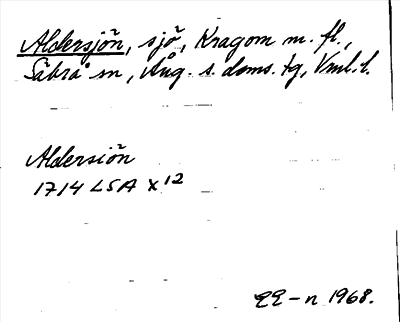 Aldersjön, sjö, Kragom m. fl.,
Säbrå sn, Ång. s. doms. tg, Vnl. l.
Aldersiön
1714 LSA X 12
EE-n 1968.